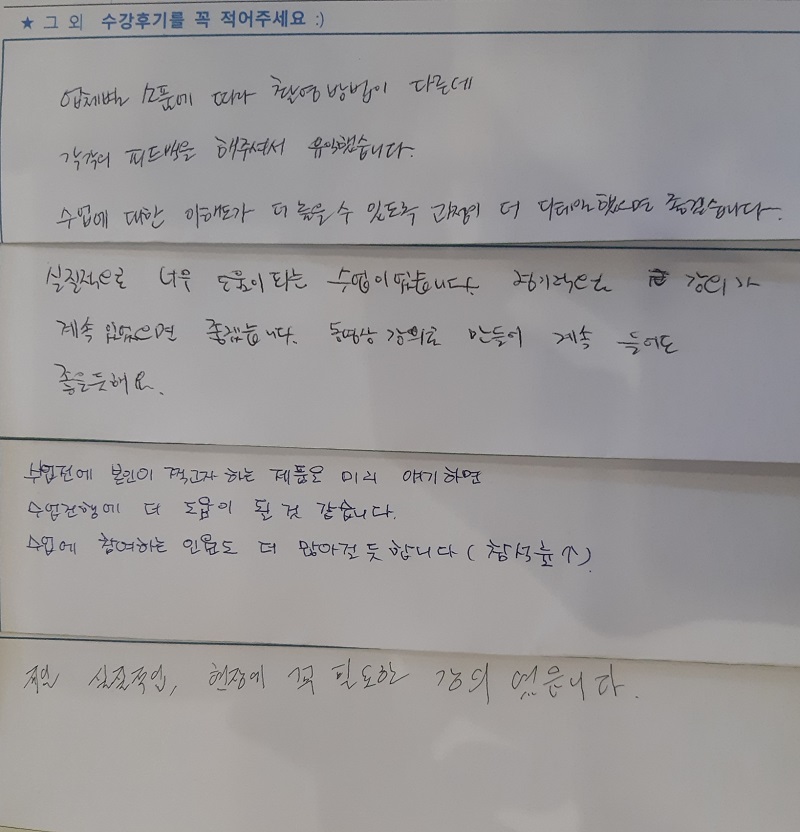 ★ 그 외 수강후기를 꼭 적어주세요 :)
업체별 소품에 따라 촬영방법이 다른데
각각의 피드백을 해주셔서 유익했습니다.
수업에 대한 이해도가 더 높을 수 있도록 과정이 더 디테일했으면 좋겠습니다.
실질적으로 너무 도움이 되는 수업이었습니다. 정기적으로 강의가
계속 있었으면 좋겠습니다. 동영상 강의로 만들어 계속 들어도
좋을듯해요.
수업전에 본인이 찍고자 하는 제품을 미리 얘기하면
수업진행에 더 도움이 될 것 같습니다.
수업에 참여하는 인원도 더 많아질 듯 합니다 (참석률↑).
제일 실질적인, 현장에 꼭 필요한 강의 였읍니다.